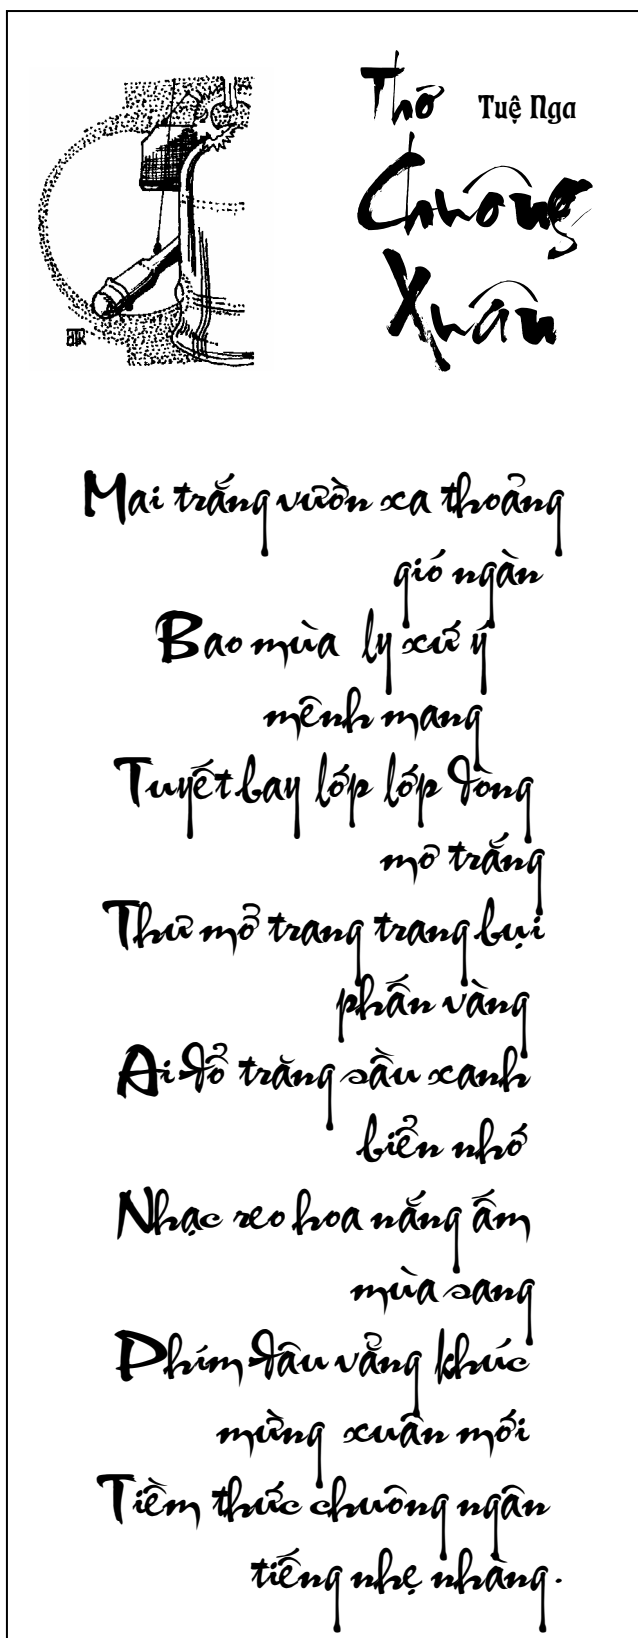 Thơ Tuệ Nga
Chuông
Xuân
Mai trắng vườn xa thoảng
gió ngàn
Bao mùa ly xứ ý
mênh mang
Tuyết bay lớp lớp dòng
mơ trắng
Thư mở trang trang bụi
phấn vàng
Ai đổ trăng sầu xanh
biển nhớ
Nhạc reo hoa nắng ấm
mùa sang
Phím đâu vẳng khúc
mừng xuân mới
Tiềm thức chuông ngân
tiếng nhẹ nhàng.